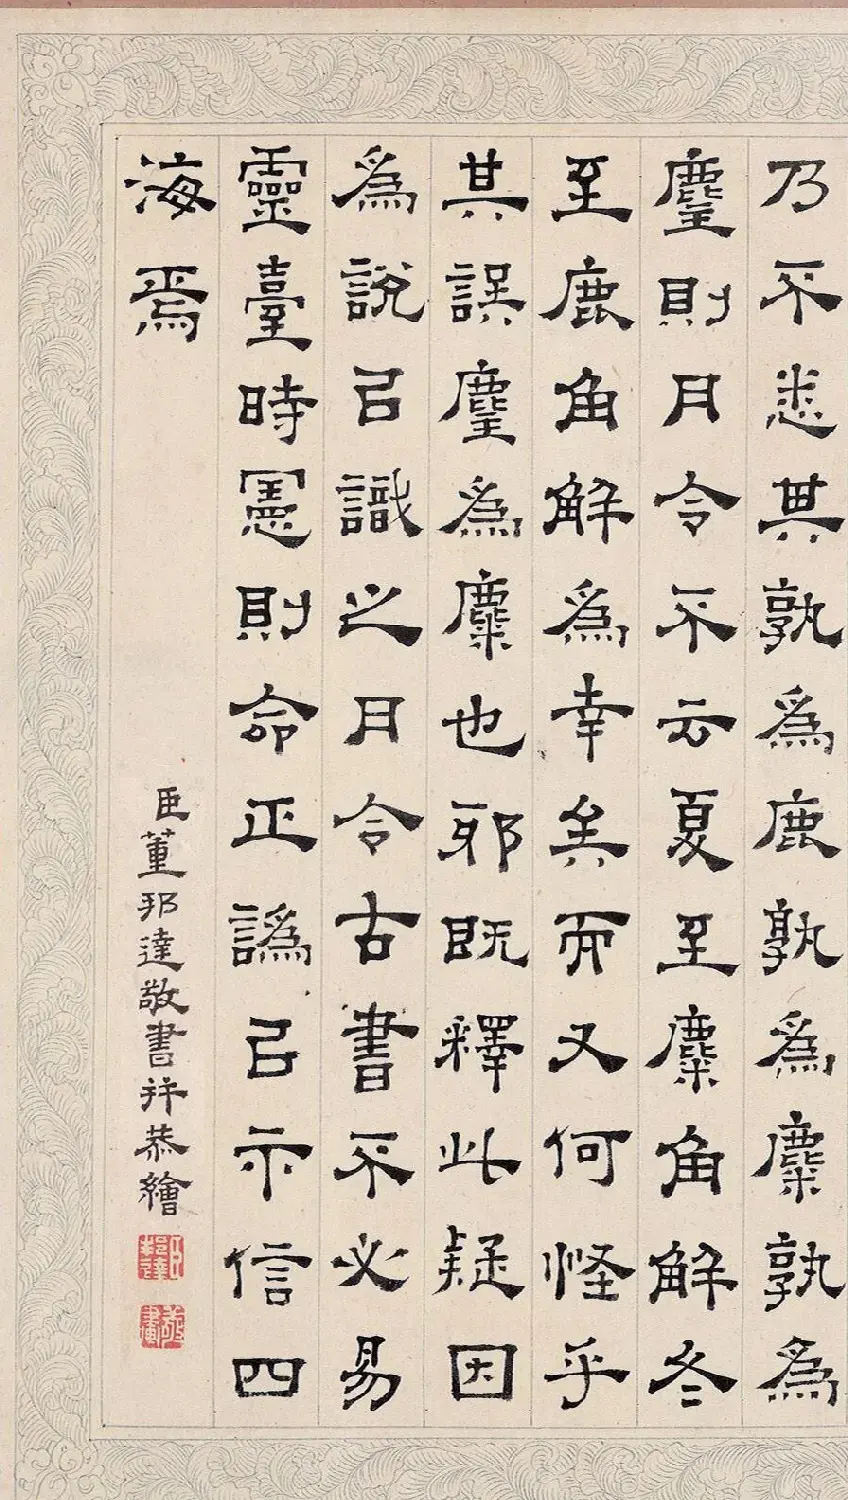 乃不悉其孰為鹿孰為麋孰為
麈則月令不云夏至麋角解冬
至鹿角解為幸矣而又何怪乎
其誤麈為麋也邪既釋此疑因
為說㠯識之月令古書不必易
靈臺時憲則命正譌㠯示信四
海焉
臣董邦達敬書并恭繪
臣邦達